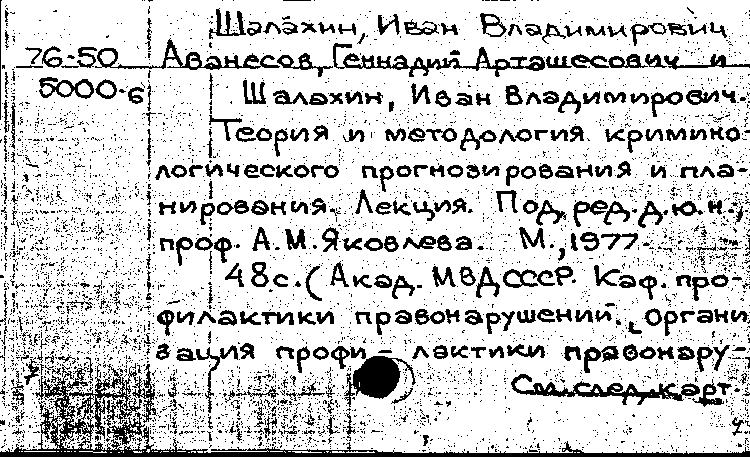 Шалахин, Иван Владимирович
76-50 Аванесов, Геннадий Арташесович и
5000-б Шалахин, Иван Владимирович.
Теория и методология кримино-
логического прогнозирования и пла-
нирования. Лекция. Под ред. д.ю.н.,
проф. А.М.Яковлева. М.,1977.
48с. (Акад. МВД СССР. Каф. про-
филактики правонарушений. Органи
зация профи-лактики правонару-
См.след.карт.